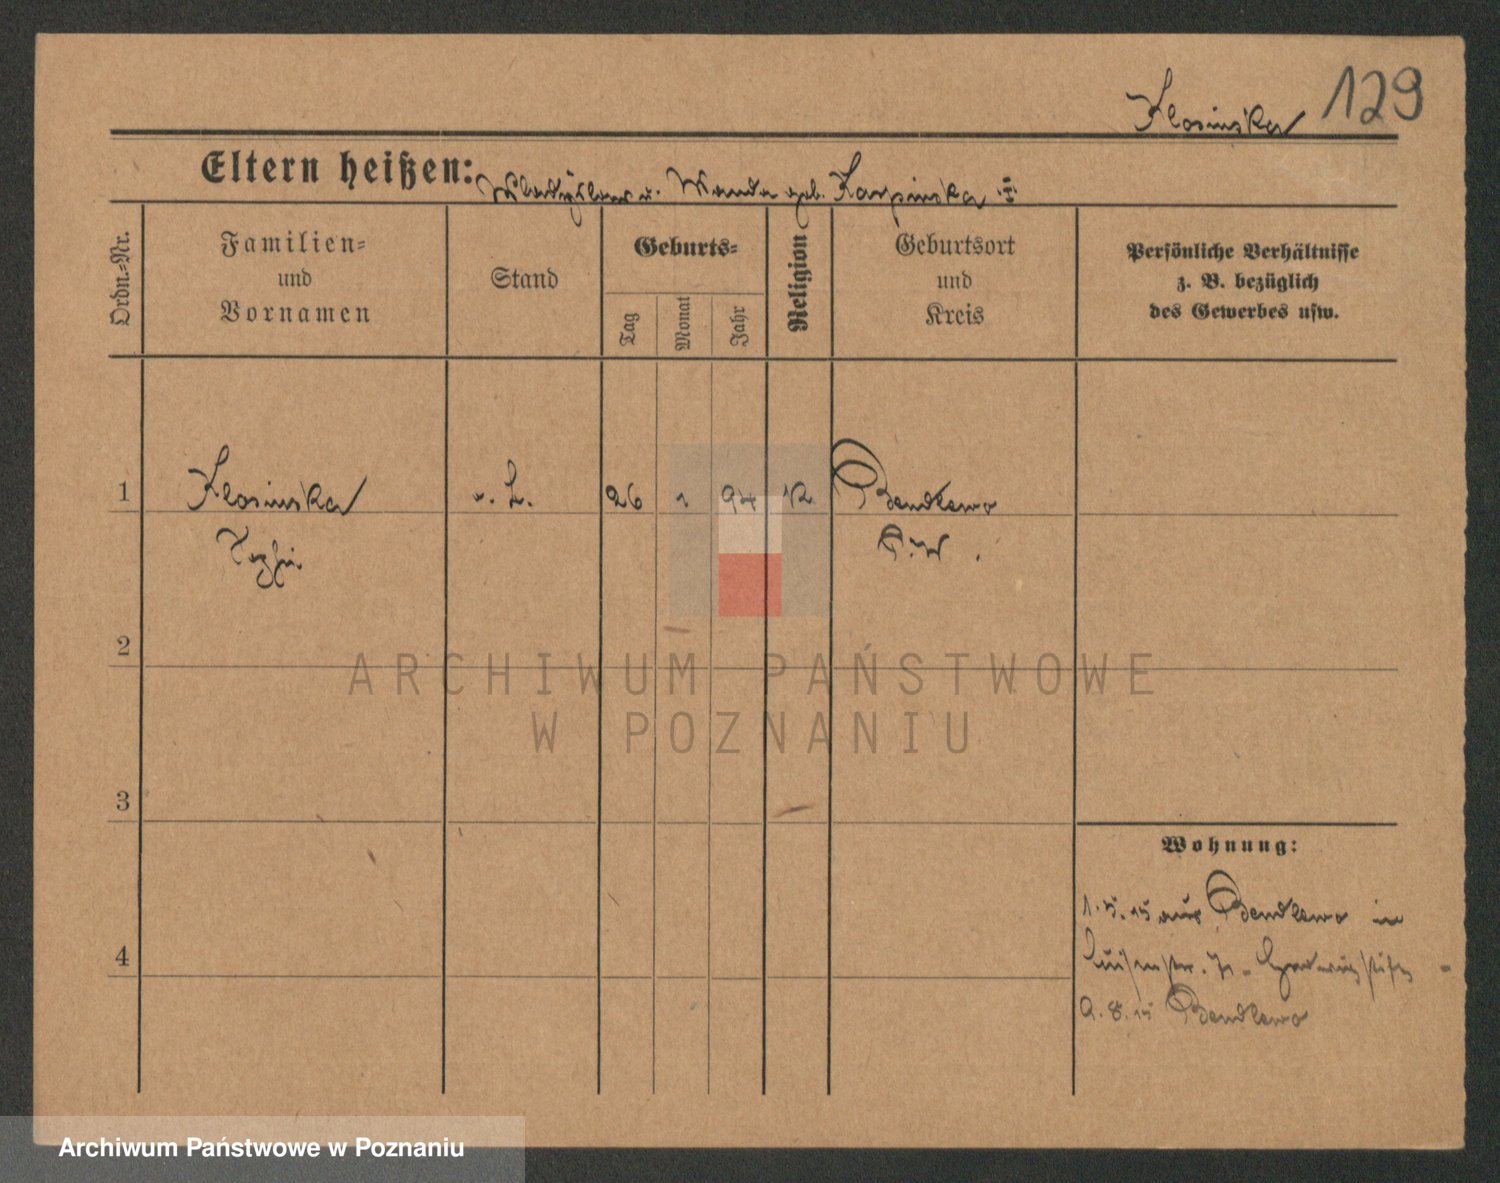 Klosinska 129
Eltern heißen: Wladyslaw u. Wanda geb. Karpinska
Ordn.-Nr.
Familien-
und
Vornamen
Stand
Geburts-
Tag
Monat
Jahr
Religion
Geburtsort
und
Kreis
Persönliche Verhältnisse
z. B. bezüglich
des Gewerbes usw.
1 Klosinska o. L. 26 1 94 K Bendlewo
Sophie P. W.
2
3
4
Wohnung:
1.5.15 aus Bendlewo in
Luisenstr. Hedwigstift
9.8.15 Bendlewo
ARCHIWUM PAŃSTWOWE
W POZNANIU
Archiwum Państwowe w Poznaniu